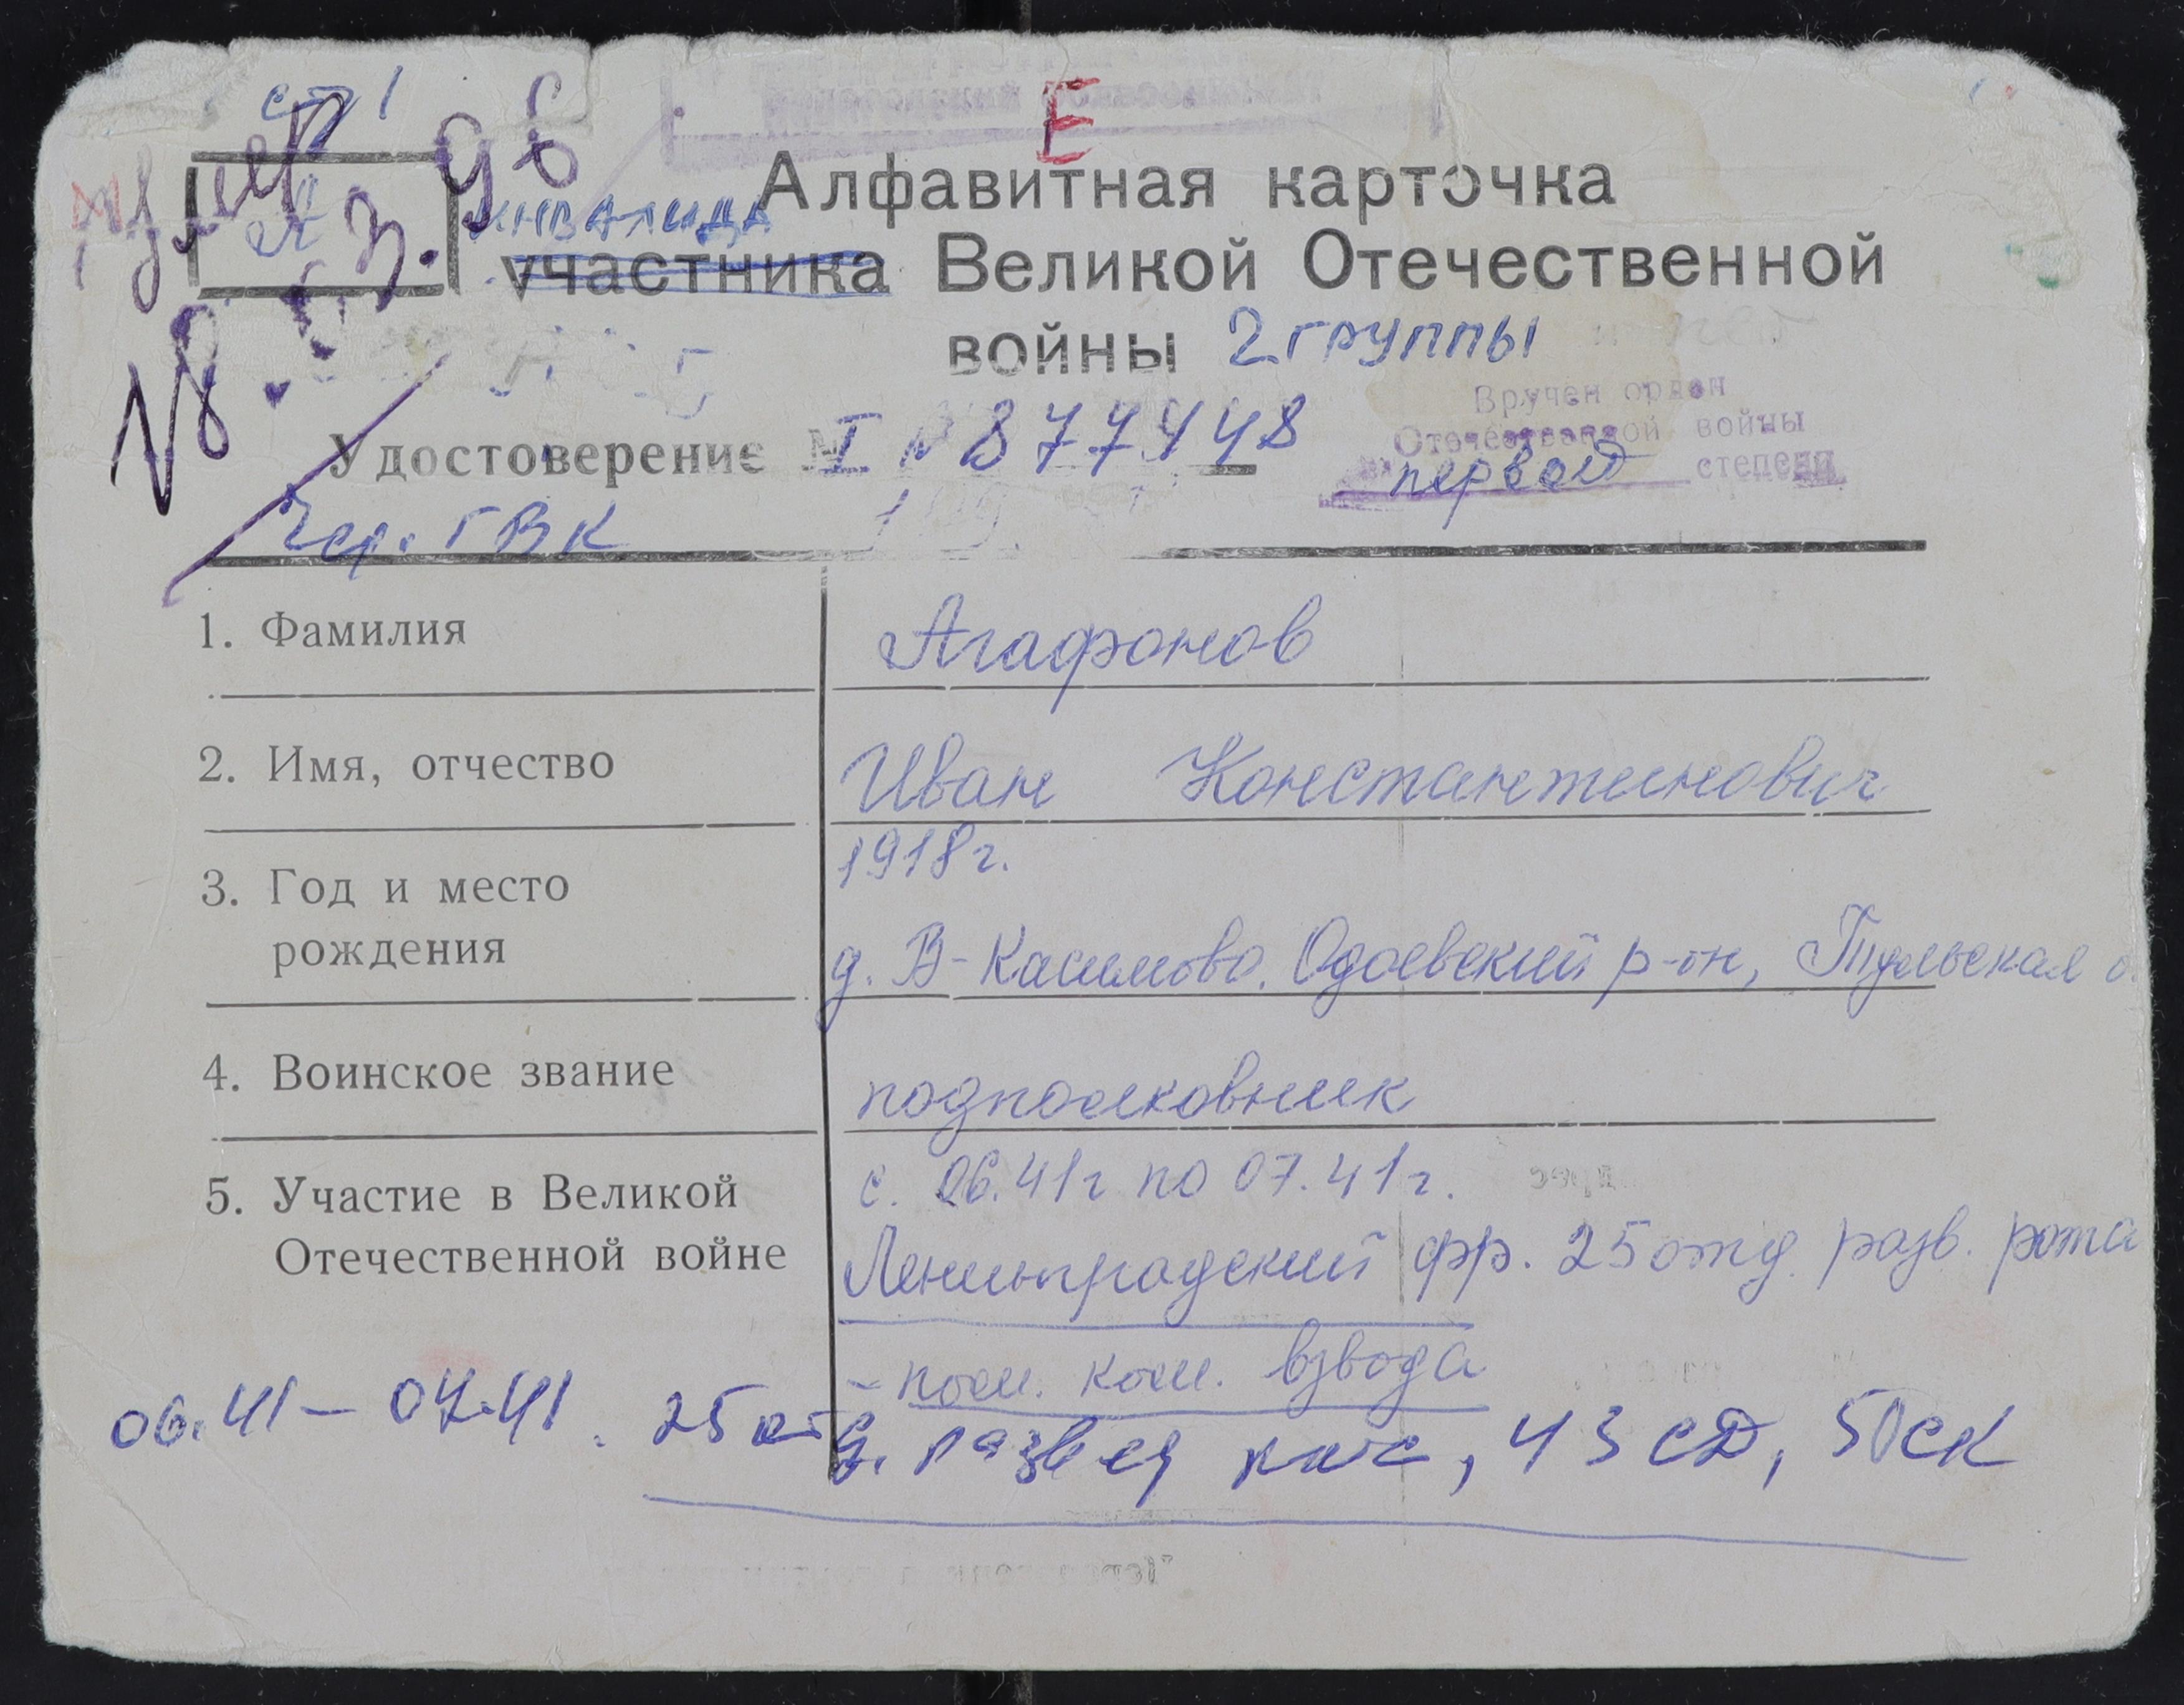 ст 1
Е
умер
18.03.96
Алфавитная карточка
инвалида
участника Великой Отечественной
войны 2 группы
Вручен орден
Отечественной войны
первой степени
Удостоверение № I № 877448
Чер. ГВК
1. Фамилия Агафонов
2. Имя, отчество Иван Константинович
3. Год и место рождения 1918г.
д. В-Касимово. Одоевский р-он, Тульская о.
4. Воинское звание подполковник
5. Участие в Великой Отечественной войне с. 06.41г по 07.41г.
Ленинградский фр. 25 отд. разв. рота
- пом. ком. взвода
06.41 - 07.41. 25 отд. развед 43 СД, 50 СК